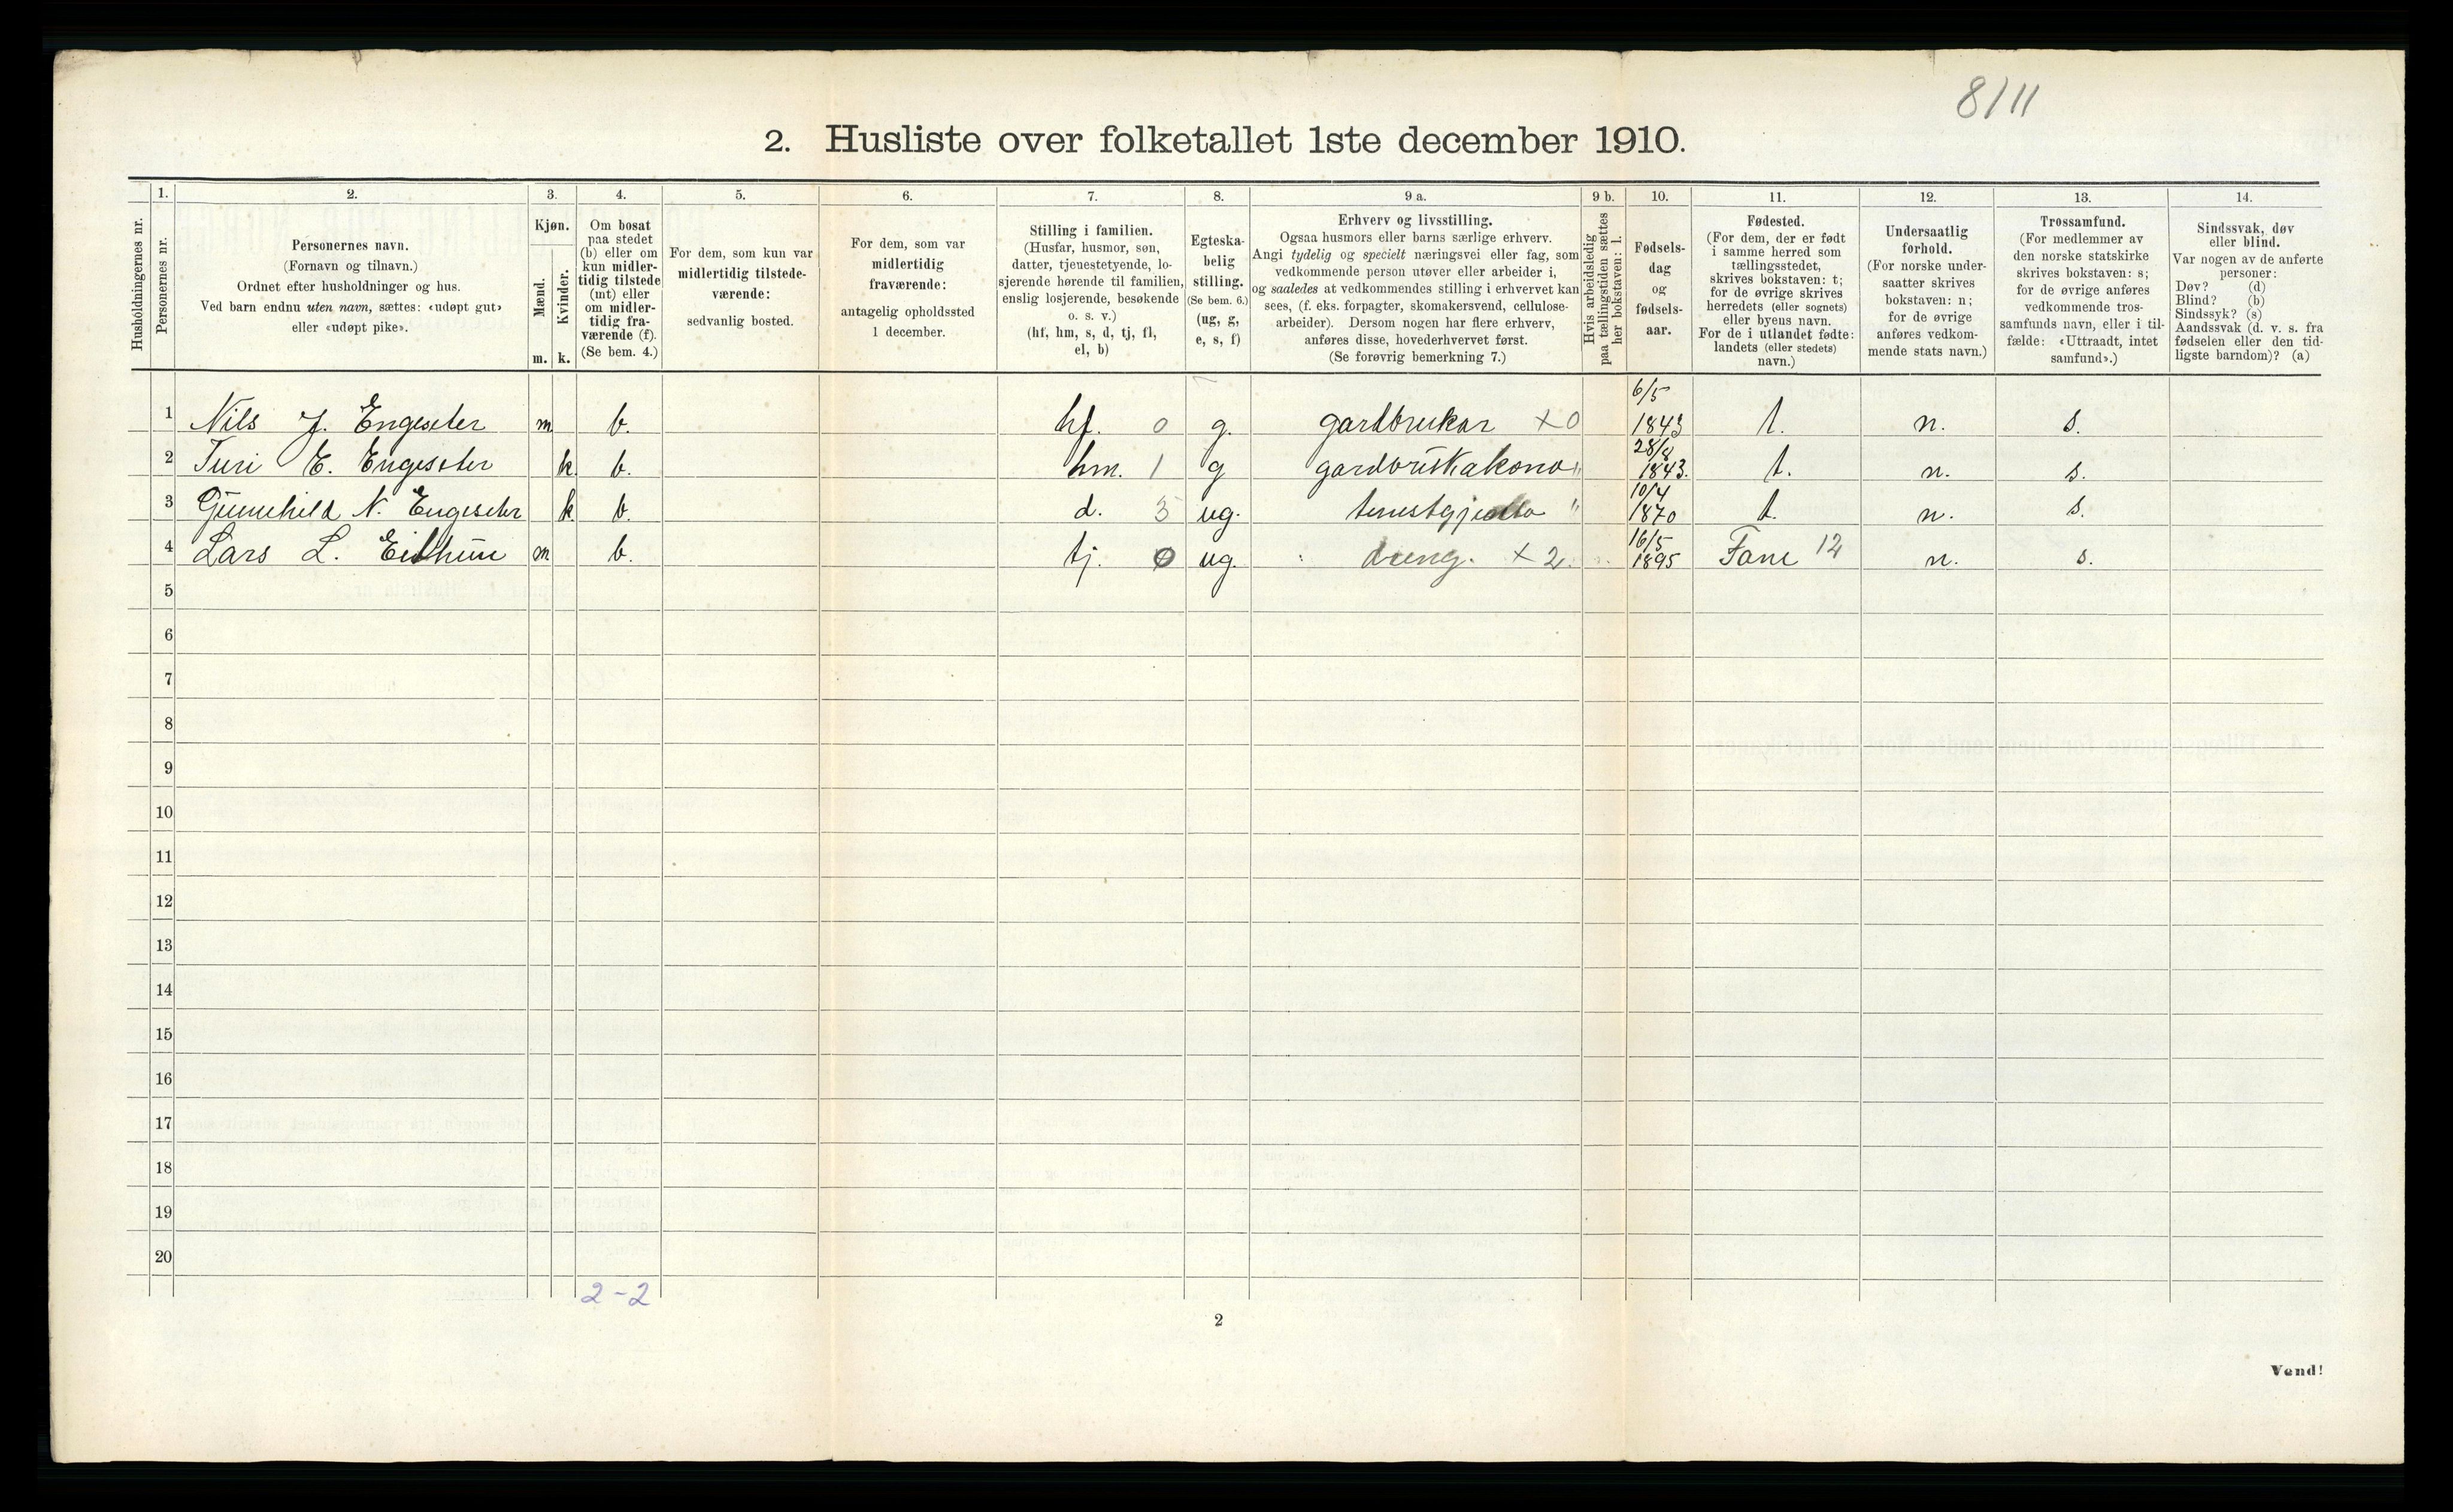 8/11
2. Husliste over folketallet 1ste december 1910.
Husholdningernes nr.
1.
Personernes nr.
2.
Personernes navn.
(Fornavn og tilnavn.)
Ordnet efter husholdninger og hus.
Ved barn endnu uten navn, sættes: «udøpt gut»
eller «udøpt pike».
3.
Kjøn.
Mænd.
Kvinder.
m. k.
4.
Om bosat
paa stedet
(b) eller om
kun midler-
tidig tilstede
(mt) eller
om midler-
tidig fra-
værende (f).
(Se bem. 4.)
5.
For dem, som kun var
midlertidig tilstede-
værende:
sedvanlig bosted.
6.
For dem, som var
midlertidig
fraværende:
antagelig opholdssted
1 december.
7.
Stilling i familien.
(Husfar, husmor, søn,
datter, tjenestetyende, lo-
sjerende hørende til familien,
enslig losjerende, besøkende
o. s. v.)
(hf, hm, s, d, tj, fl,
el, b)
8.
Egteska-
belig
stilling.
(Se bem. 6.)
(ug, g,
e, s, f)
9 a.
Erhverv og livsstilling.
Ogsaa husmors eller barns særlige erhverv.
Angi tydelig og specielt næringsvei eller fag, som
vedkommende person utøver eller arbeider i,
og saaledes at vedkommendes stilling i erhvervet kan
sees, (f. eks. forpagter, skomakersvend, cellulose-
arbeider). Dersom nogen har flere erhverv,
anføres disse, hovederhvervet først.
(Se forøvrig bemerkning 7.)
9 b.
Hvis arbeidsledig
paa tællingstiden sættes
her bokstaven: l.
10.
Fødsels-
dag
og
fødsels-
aar.
11.
Fødested.
(For dem, der er født
i samme herred som
tællingsstedet,
skrives bokstaven: t;
for de øvrige skrives
herredets (eller sognets)
eller byens navn.
For de i utlandet fødte:
landets (eller stedets)
navn.)
12.
Undersaatlig
forhold.
(For norske under-
saatter skrives
bokstaven: n;
for de øvrige
anføres vedkom-
mende stats navn.)
13.
Trossamfund.
(For medlemmer av
den norske statskirke
skrives bokstaven: s;
for de øvrige anføres
vedkommende tros-
samfunds navn, eller i til-
fælde: «Uttraadt, intet
samfund».)
14.
Sindssvak, døv
eller blind.
Var nogen av de anførte
personer:
Døv? (d)
Blind? (b)
Sindssyk? (s)
Aandssvak (d. v. s. fra
fødselen eller den tid-
ligste barndom)? (a)
1 Nils J. Engeseter m b. hf. 0 g. gardbrukar X0 6/5 1843 t. n. s.
2 Turi E. Engeseter k b. hm. 1 g gardbrukakona " 28/8 1843. t. n. s.
3 Gunnhild N. Engeseter k b. d. 3 ug. " 10/4 1870 t. n. s.
4 Lars L. Eithun m b. tj. 0 ug. dreng. X 2. 16/5 1895 12 n. s.
5
6
7
8
9
10
11
12
13
14
15
16
17
18
19
20
2-2
2
Vend!